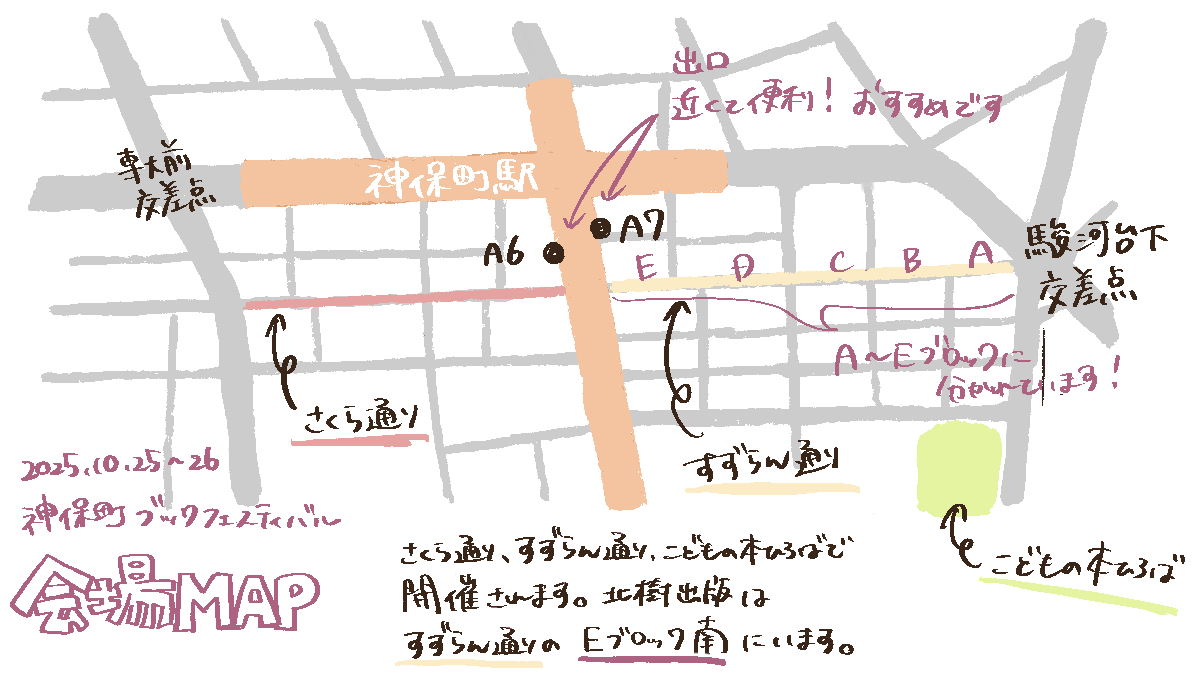 出口
近くて便利! おすすめです
専大前
交差点
神保町駅
A6
A7
駿河台下
交差点
E D C B A
A～Eブロックに
分かれています!
さくら通り
すずらん通り
2025.10.25～26
神保町ブックフェスティバル
会場MAP
こどもの本ひろば
さくら通り、すずらん通り、こどもの本ひろばで
開催されます。北樹出版は
すずらん通りの Eブロック南にいます。